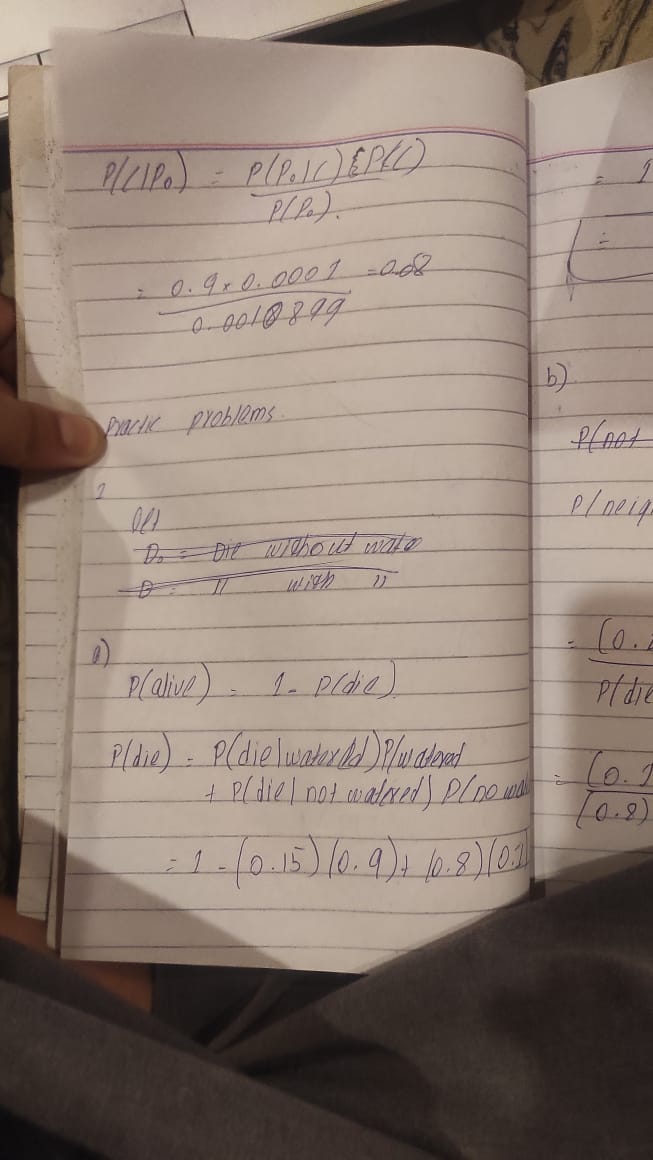 P(C|P₀) = P(P₀|C) P(C)
P(P₀).
= 0.9 x 0.0001 = 0.08
0.0010899
Practic problems.
1
Let
D₀ = Die without wate
D = 〃 with 〃
a)
P(alive) = 1 - P(die)
P(die) = P(die|watered) P(watered
+ P(die| not watered) P(no wa
= 1 - (0.15)(0.9) + (0.8)(0.1
= 1
=
b)
P(not
P(neig
= (0.
P(die
= (0.1
(0.8)